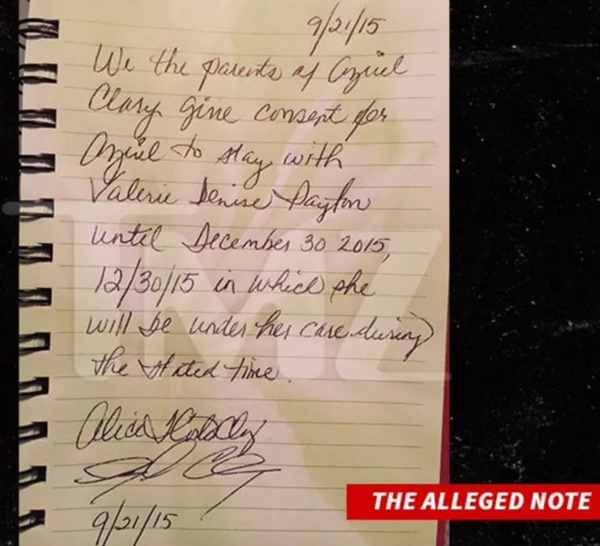 9/21/15
We the parents of Azriel
Clary give consent for
Azriel to stay with
Valerie Denise Payton
until December 30 2015,
12/30/15 in which she
will be under her care during
the stated time.
TMZ
9/21/15
THE ALLEGED NOTE